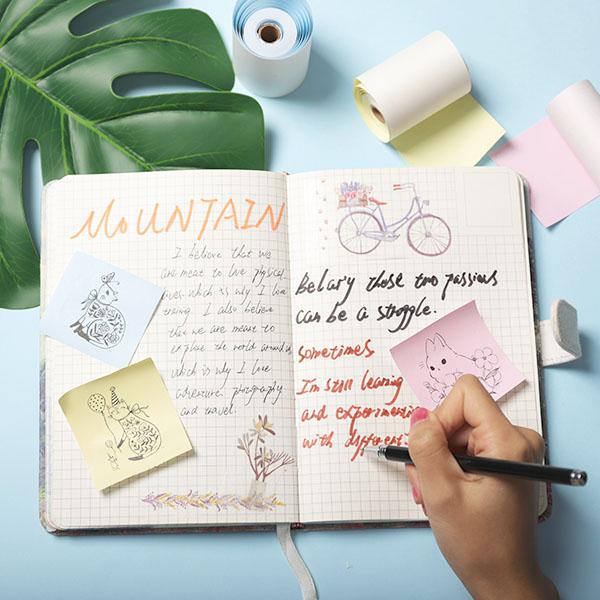 MoUNTAIN
I believe that we
are meant to live physical
lives which is why I love
training. I also believe
that we are meant to
explore the world around us
which is why I love
adventure, photography
and travel.
Belary those two passions
can be a stroggle.
Sometimes
I'm still learning
and experimenting
with different